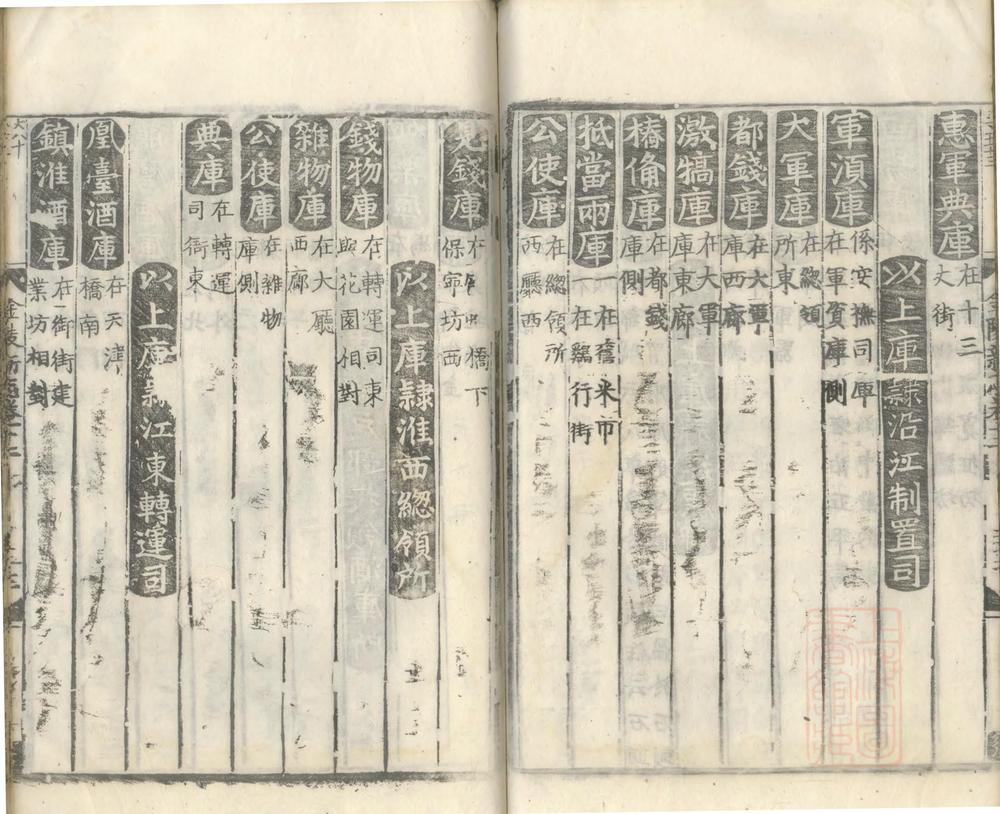 惠軍典庫在十三文街
以上庫隷沿江制置司
軍湏庫係安撫司庫在軍資庫側
大軍庫在緫領所東
都錢庫在大軍庫西廊
激犒庫在大軍庫東廊
樁偹庫在都錢庫側
抵當兩庫一在舊米市一在鷄行街
公使庫在緫領所西廳西
見錢庫在橋下保寧坊西
以上庫隷淮西緫領所
錢物庫在轉運司東與花園相對
雜物庫在大廳西廊
公使庫在雜物庫側
典庫在轉運司衙東
以上庫隷江東轉運司
凰臺酒庫在天津橋南
鎮淮酒庫在御街建業坊相對